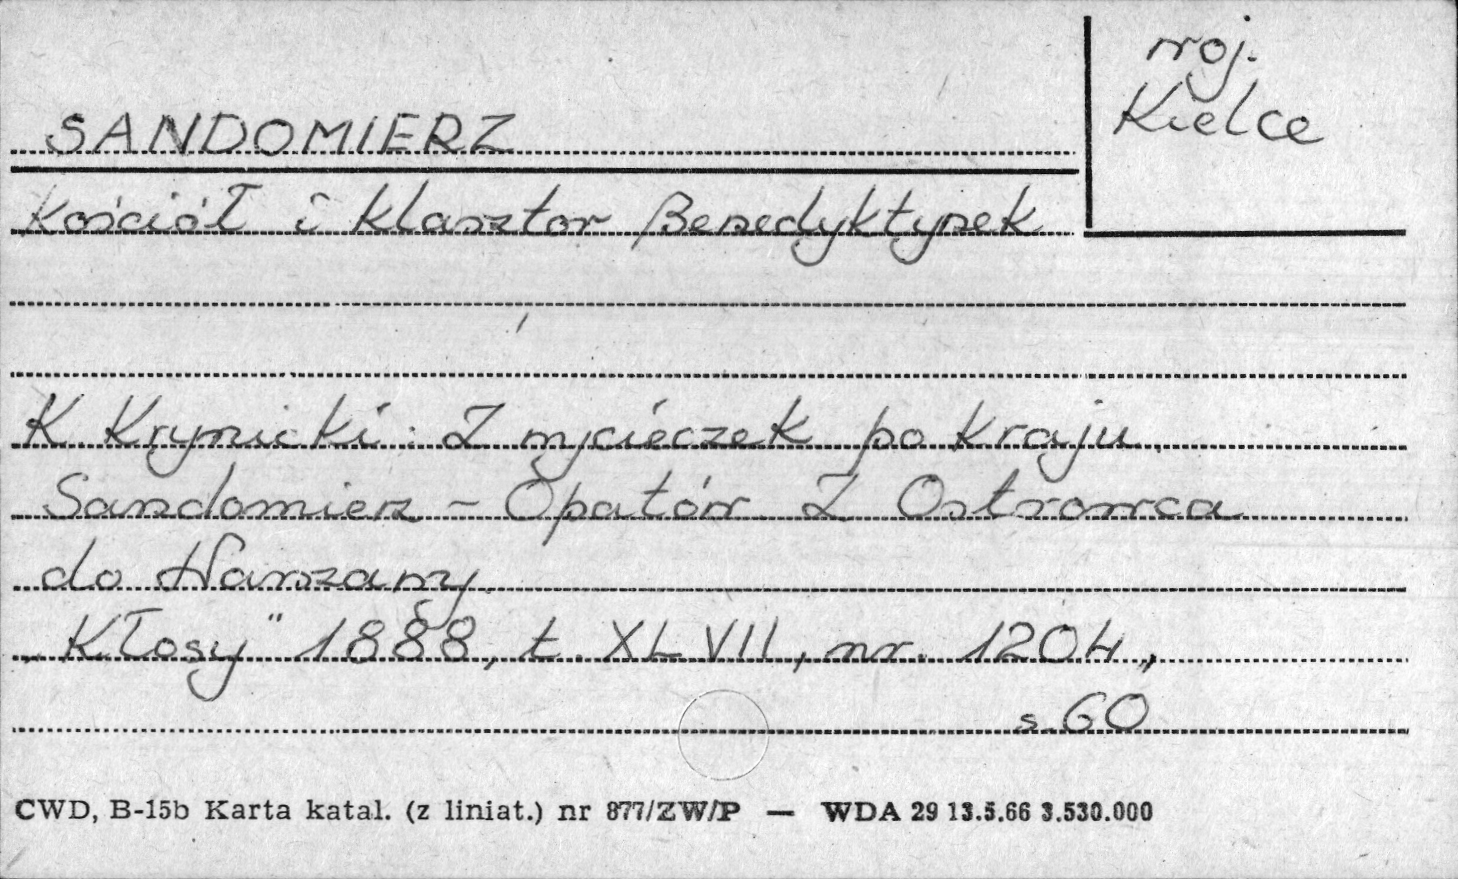 woj.
Kielce
SANDOMIERZ
Kościół i klasztor Benedyktynek
K. Krynicki: Z wycieczek po kraju.
Sandomierz – Opatów. Z Ostrowca
do Warszawy.
„Kłosy" 1888, t. XLVII, nr. 1204,
s. 60
CWD, B-15b Karta katal. (z liniat.) nr 877/ZW/P — WDA 29 13.5.66 3.530.000